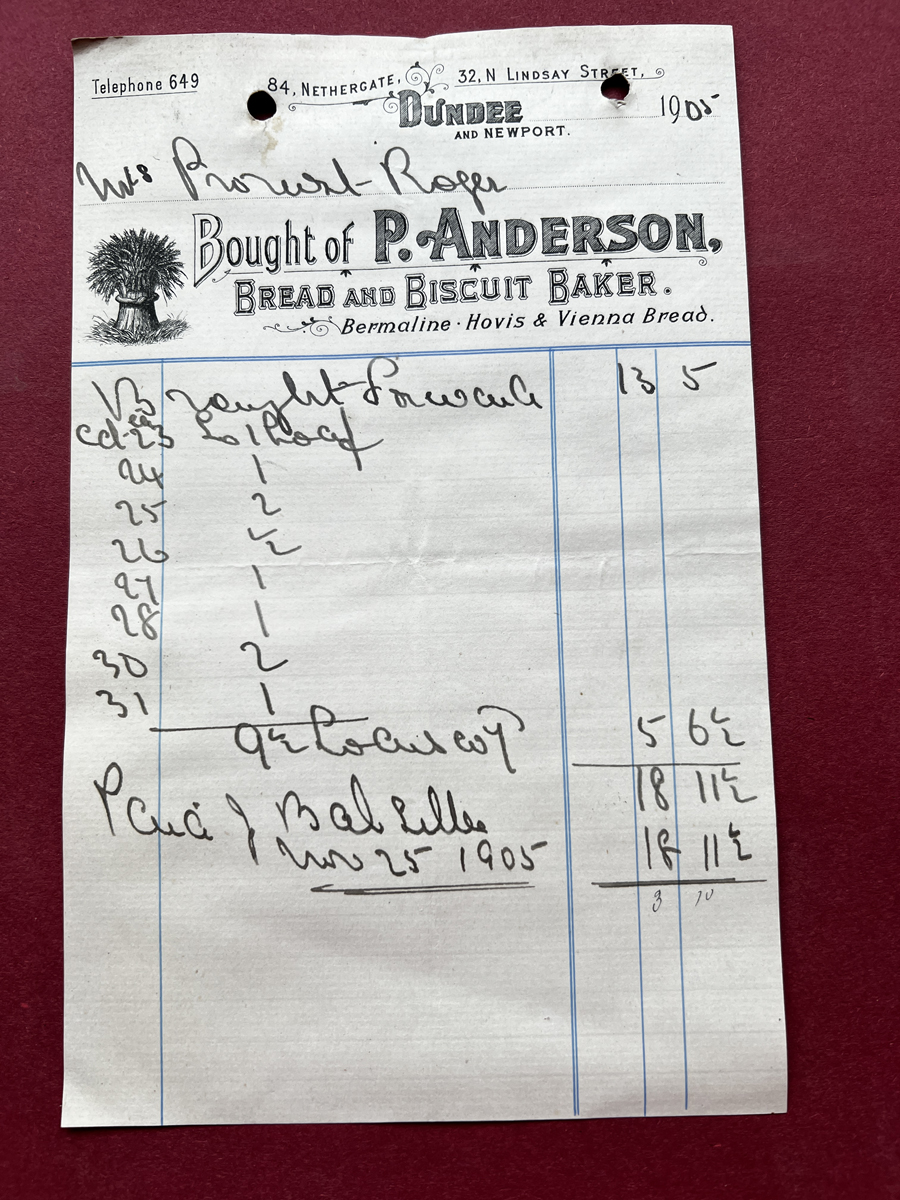 Telephone 649
84, NETHERGATE, 32, N LINDSAY STREET,
DUNDEE
AND NEWPORT.
1905
Mrs Provost Roger
Bought of P. ANDERSON,
BREAD AND BISCUIT BAKER.
Bermaline · Hovis & Vienna Bread.
Brought Forward 13 5
23 To 1 Loaf
24 1
25 2
26 ½
27 1
28 1
30 2
31 1
9½ Loaves 5 6½
18 11½
Paid J Balsillie 18 11½
Nov 25 1905
3 10